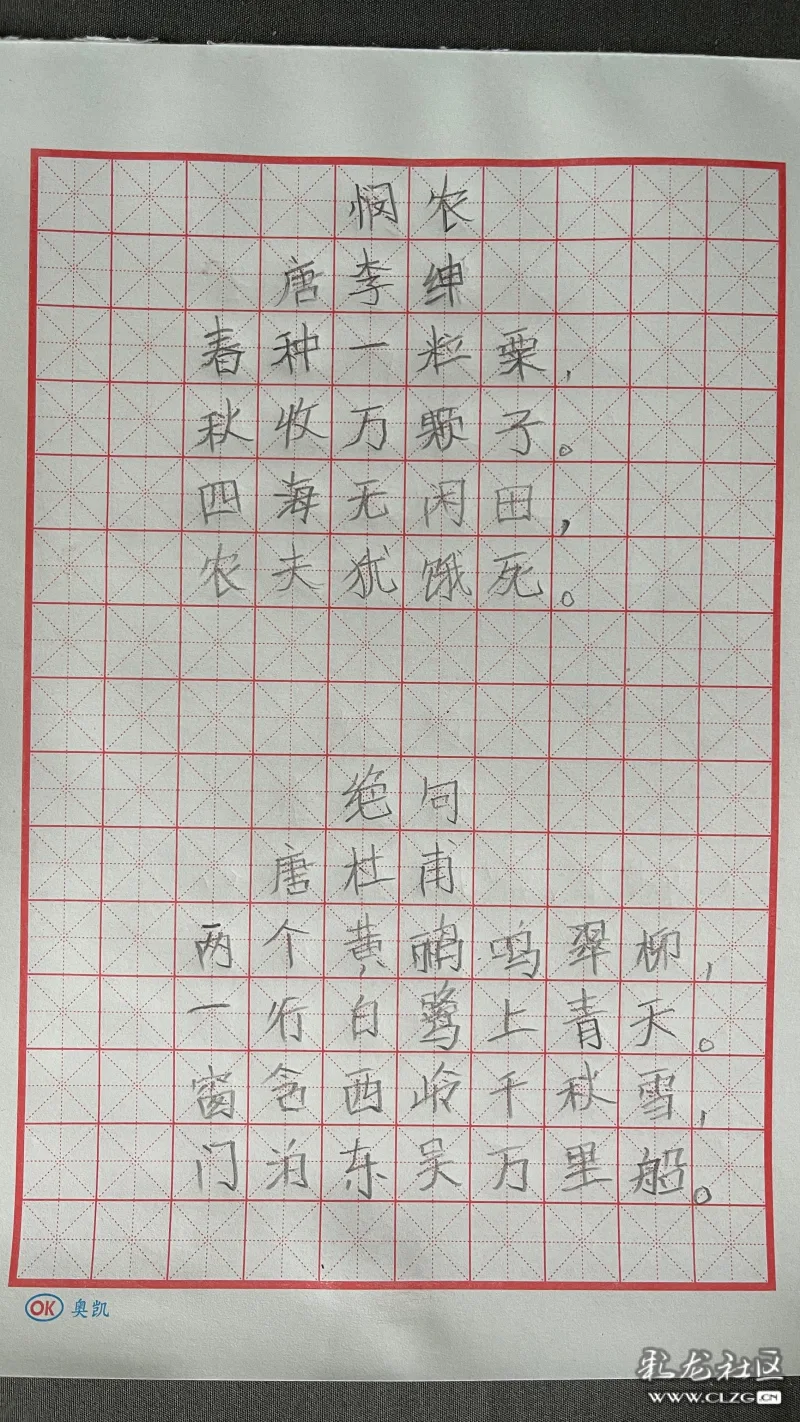 悯农
唐李绅
春种一粒粟,
秋收万颗子。
四海无闲田,
农夫犹饿死。
绝句
唐杜甫
两个黄鹂鸣翠柳,
一行白鹭上青天。
窗含西岭千秋雪,
门泊东吴万里船。
OK 奥凯
彩龙社区
WWW.CLZG.CN